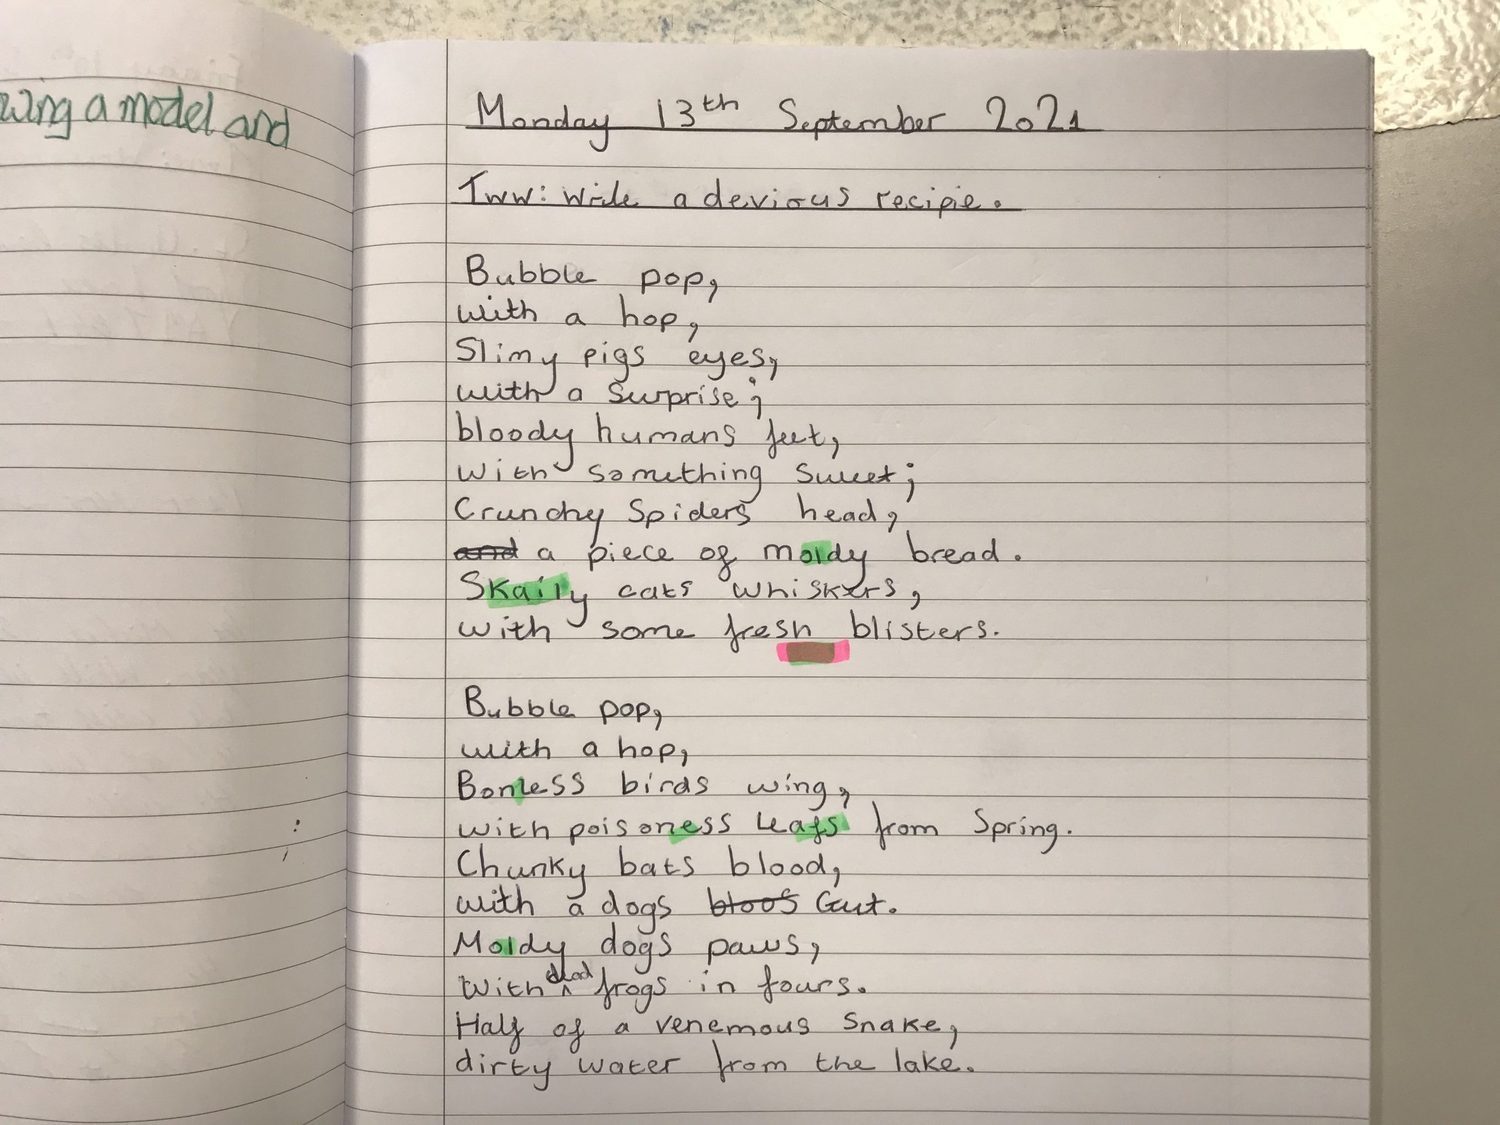 wing a model and
Monday 13th September 2021
Tww: Write a devious recipie.
Bubble pop,
with a hop,
Slimy pigs eyes,
with a surprise;
bloody humans feet,
with something sweet;
Crunchy Spiders head,
and a piece of moldy bread.
Skaily cats whiskers,
with some fresh blisters.
Bubble pop,
with a hop,
Bonless birds wing,
with poisoness leafs from Spring.
Chunky bats blood,
with a dogs Gut.
Moldy dogs paws,
With dead frogs in fours.
Half of a venemous snake,
dirty water from the lake.